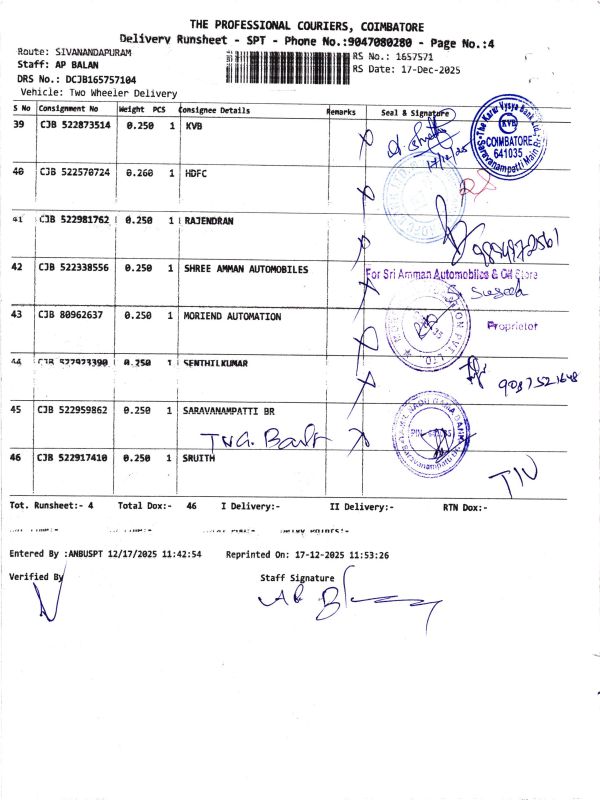 THE PROFESSIONAL COURIERS, COIMBATORE
Delivery Runsheet - SPT - Phone No.:9047080280 - Page No.:4
Route: SIVANANDAPURAM
RS No.: 1657571
Staff: AP BALAN
RS Date: 17-Dec-2025
DRS No.: DCJB165757104
Vehicle: Two Wheeler Delivery
S No Consignment No Weight PCS Consignee Details Remarks Seal & Signature
39 CJB 522873514 0.250 1 KVB
The Karur Vysya Bank Ltd.
KVB
COIMBATORE
641035
Saravanampatti Main Br.
17/12/25
40 CJB 522570724 0.260 1 HDFC
41 CJB 522981762 0.250 1 RAJENDRAN
42 CJB 522338556 0.250 1 SHREE AMMAN AUTOMOBILES
For Sri Amman Automobiles & Oil Store
43 CJB 80962637 0.250 1 MORIEND AUTOMATION
Proprietor
44 CJB 522923390 0.250 1 SENTHILKUMAR
45 CJB 522959862 0.250 1 SARAVANAMPATTI BR
46 CJB 522917410 0.250 1 SRUITH
Tot. Runsheet:- 4 Total Dox:- 46 I Delivery:- II Delivery:- RTN Dox:-
Entered By :ANBUSPT 12/17/2025 11:42:54 Reprinted On: 17-12-2025 11:53:26
Verified By Staff Signature